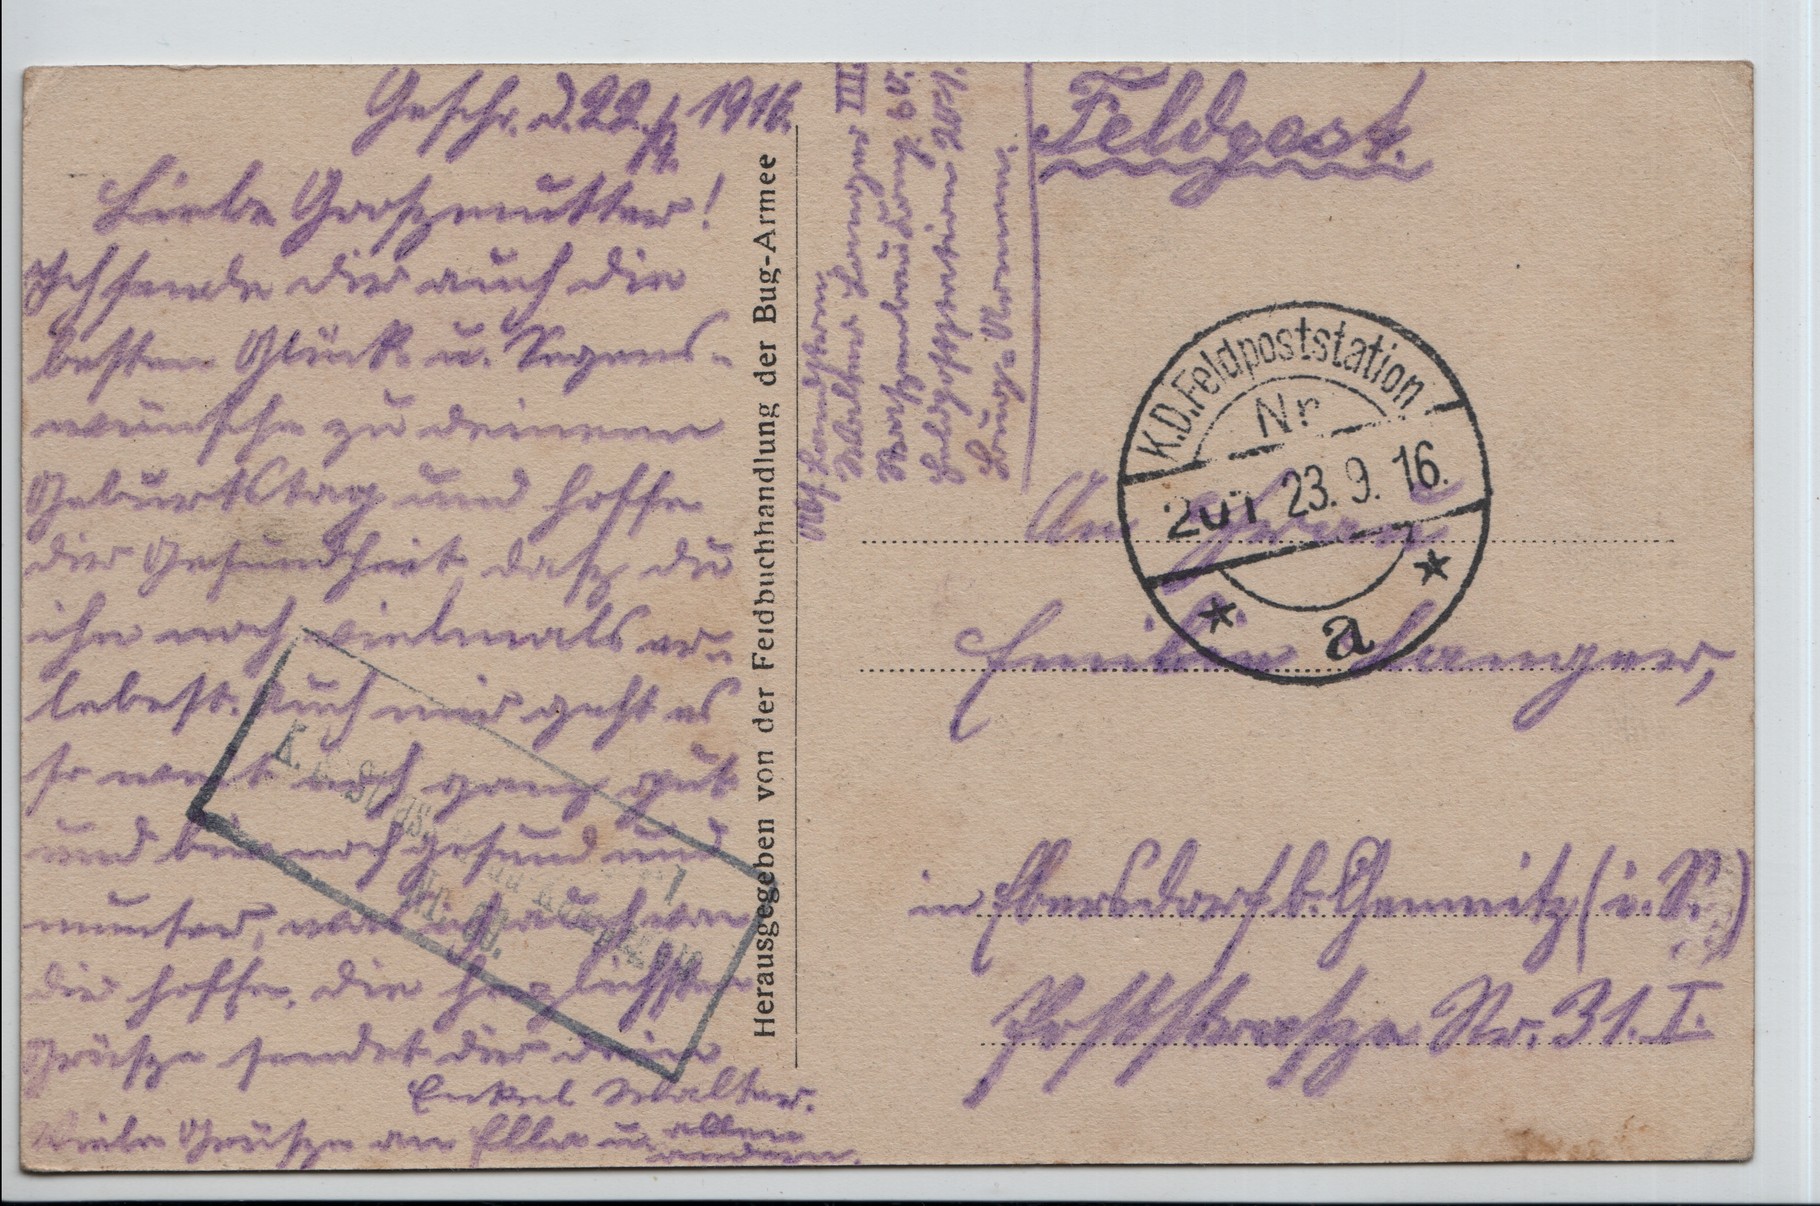 Geschr. d. 22./9. 1916.
Liebe Groszmutter!
Ich sende dir auch die
besten Glück- u. Segens-
wünsche zu deinem
Geburtstag und hoffe
die Gesundheit, dasz du
ihn noch vielmals er-
lebest. Auch mir geht es
so weit noch ganz gut
und bin noch gesund und
munter, was ich auch von
dir hoffe. die herzlichsten
Grüsze sendet dir dein
Enkel Walter.
Viele Grüsze an Ella u. allen
andern.
Herausgegeben von der Feldbuchhandlung der Bug-Armee
Abs. Landstrm.
Walter Langer III
Feldpoststation 201.
Bug-Armee.
Feldpost.
K.D.Feldpoststation
Nr
201 23.9.16.
* a *
An Frau
Emilie Langer,
in Ebersdorf b. Chemnitz (i. S.)
Poststrasze Nr. 31. I.
K.
Nr. 60.